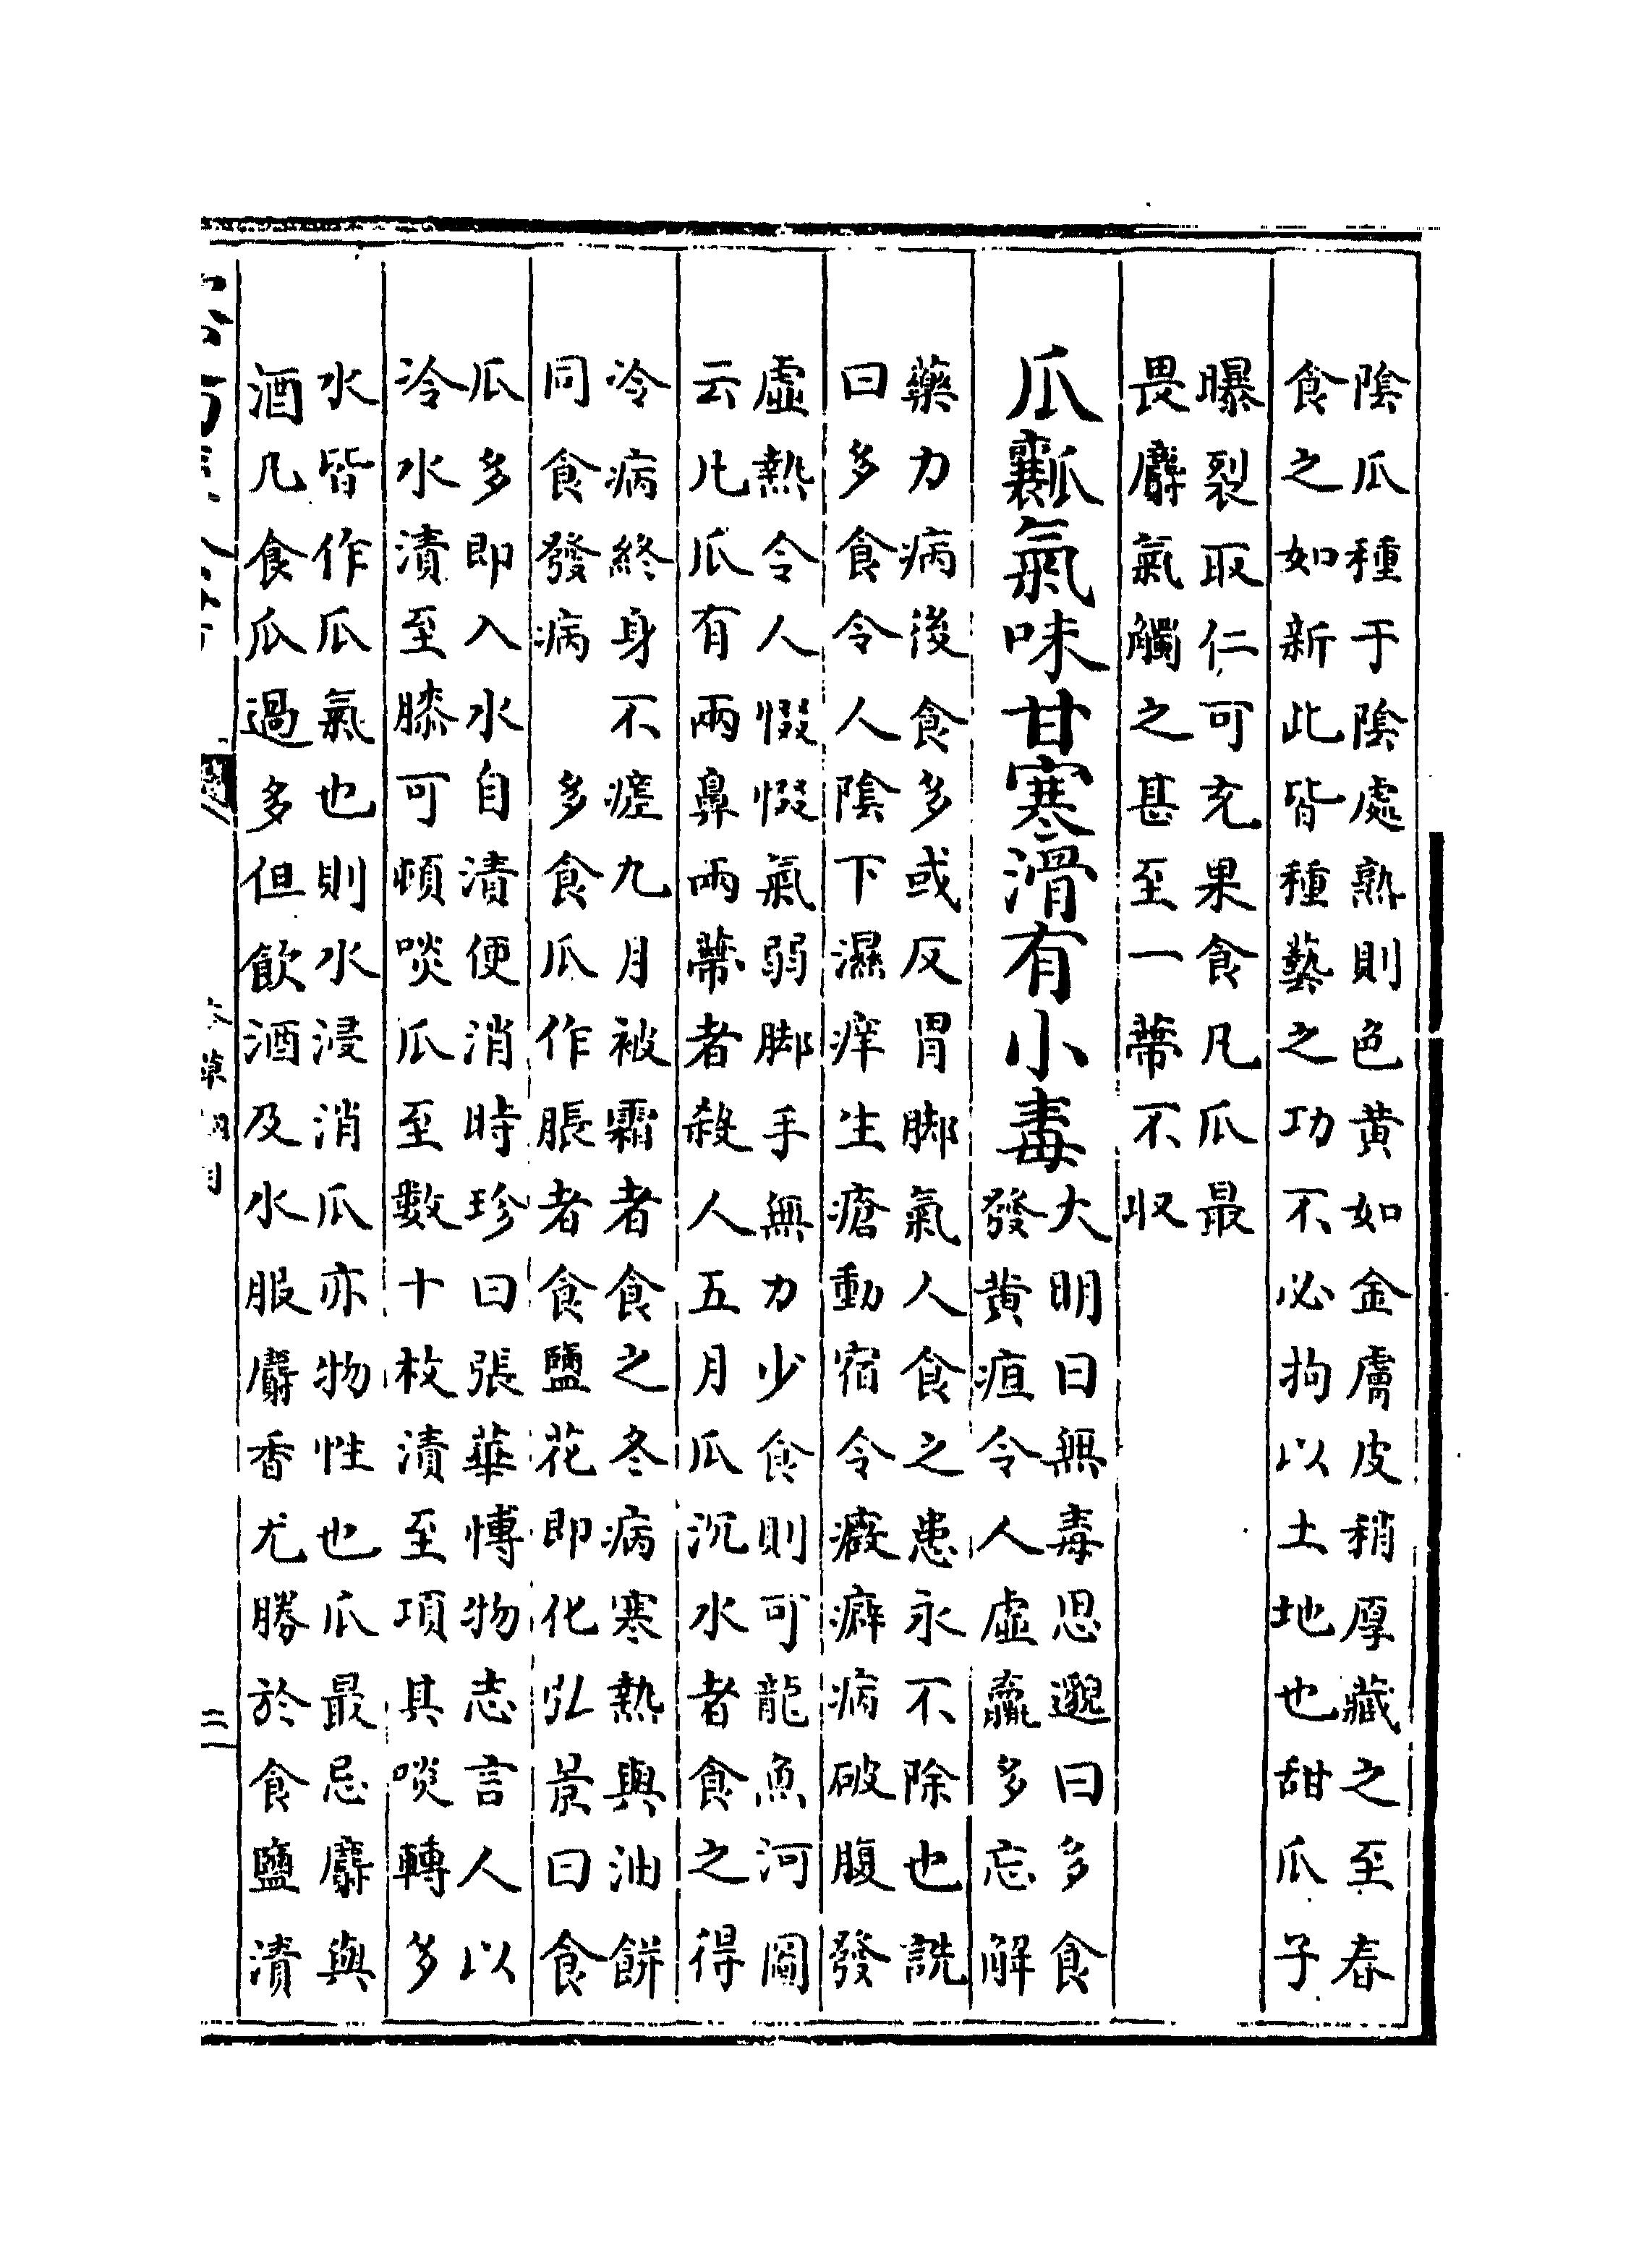 陰瓜種于陰處熟則色黄如金膚皮稍厚藏之至春
食之如新此皆種藝之功不必拘以土地也甜瓜子
曝裂取仁可充果食凡瓜最
畏麝氣觸之甚至一蔕不收
瓜瓤氣味甘寒滑有小毒
大明曰無毒思邈曰多食
發黄疸令人虛羸多忘解
藥力病後食多或反胃脚氣人食之患永不除也詵
曰多食令人陰下濕痒生瘡動宿令癥癖病破腹發
虛熱令人惙惙氣弱脚手無力少食則可龍魚河圖
云凡瓜有兩鼻兩蔕者殺人五月瓜沉水者食之得
冷病終身不瘥九月被霜者食之冬病寒熱與油餅
同食發病 多食瓜作脹者食鹽花即化弘景曰食
瓜多即入水自漬便消時珍曰張華愽物志言人以
冷水漬至膝可頓啖瓜至數十枚漬至項其啖轉多
水皆作瓜氣也則水浸消瓜亦物性也瓜最忌麝與
酒凡食瓜過多但飲酒及水服麝香尤勝於食鹽漬
本草綱目